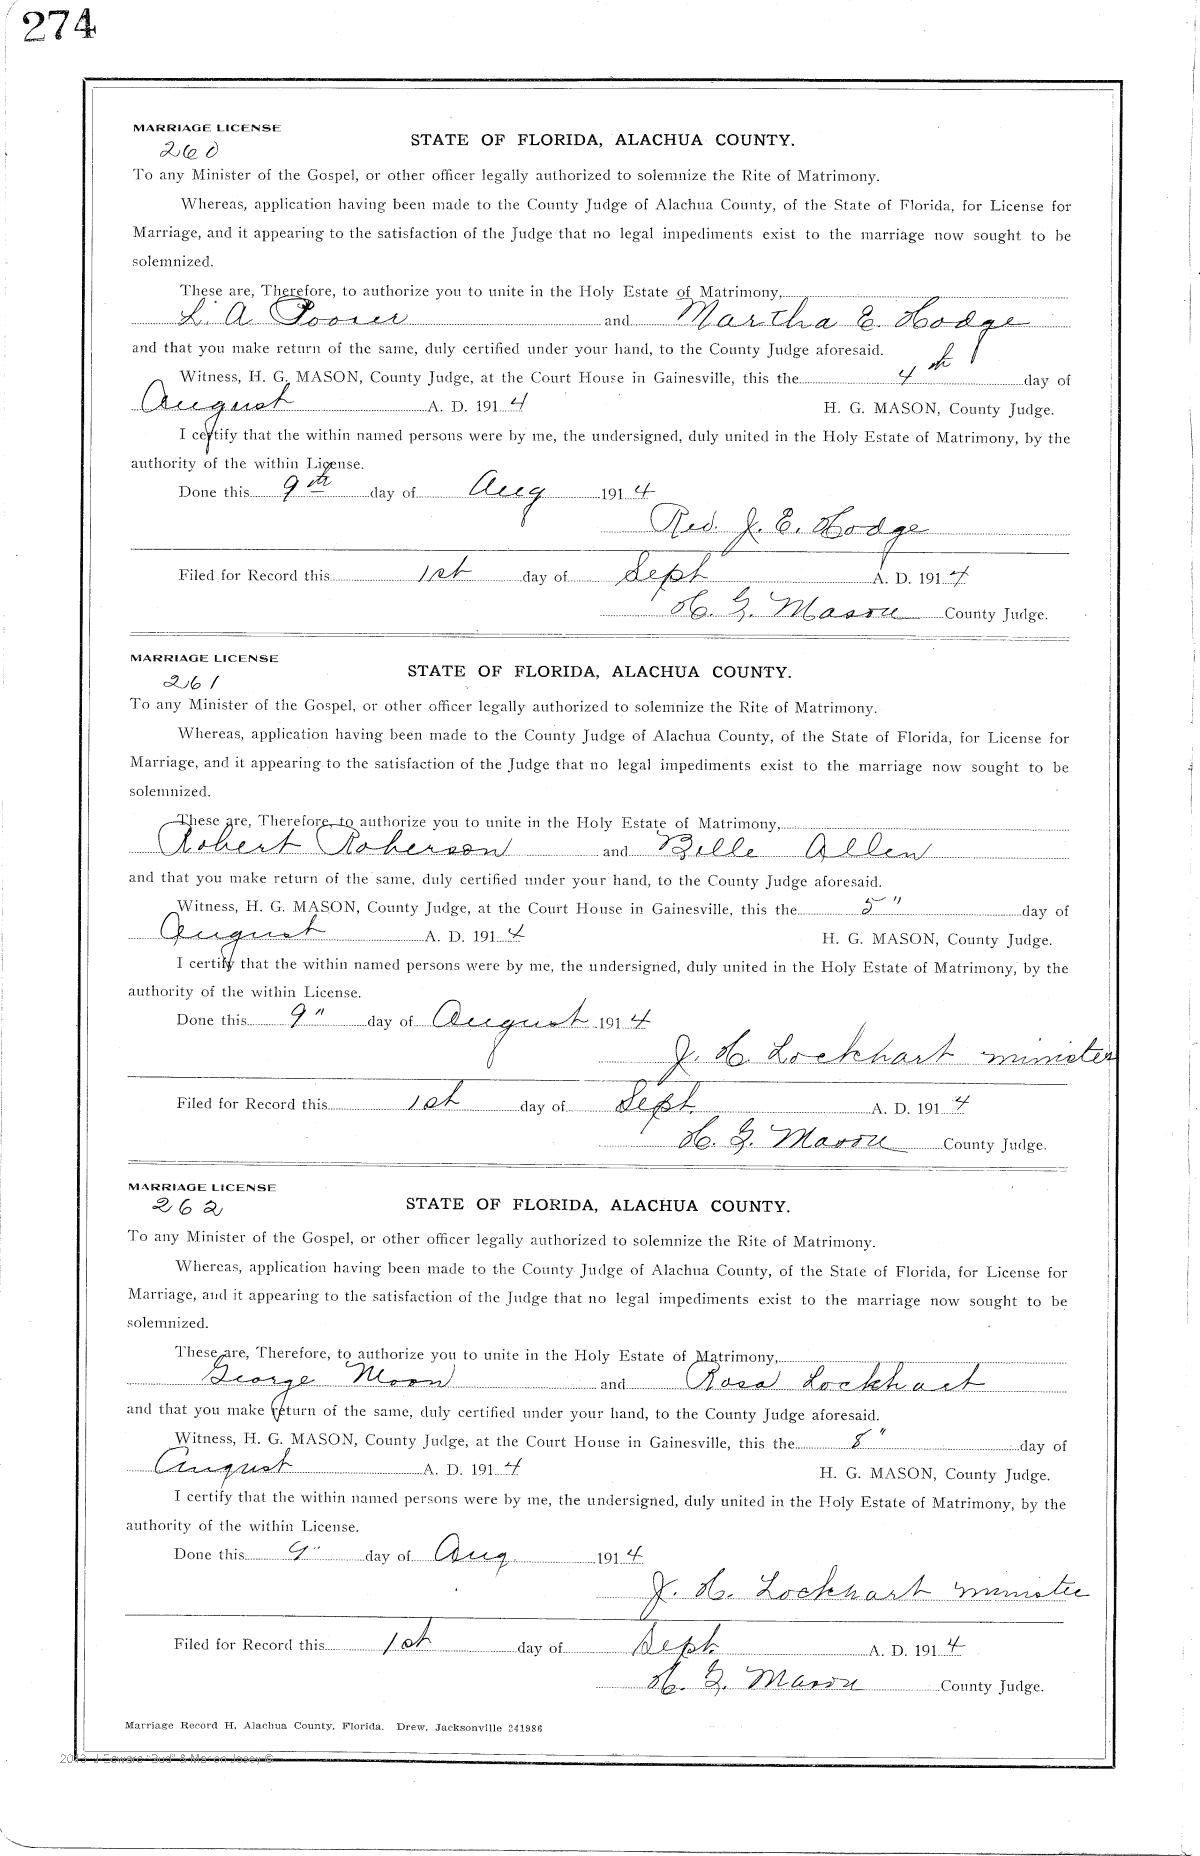 274
MARRIAGE LICENSE
260
STATE OF FLORIDA, ALACHUA COUNTY.
To any Minister of the Gospel, or other officer legally authorized to solemnize the Rite of Matrimony.
Whereas, application having been made to the County Judge of Alachua County, of the State of Florida, for License for
Marriage, and it appearing to the satisfaction of the Judge that no legal impediments exist to the marriage now sought to be
solemnized.
These are, Therefore, to authorize you to unite in the Holy Estate of Matrimony,
L. A. Pooser and Martha E. Hodge
and that you make return of the same, duly certified under your hand, to the County Judge aforesaid.
Witness, H. G. MASON, County Judge, at the Court House in Gainesville, this the 4th day of
August A. D. 1914 H. G. MASON, County Judge.
I certify that the within named persons were by me, the undersigned, duly united in the Holy Estate of Matrimony, by the
authority of the within License.
Done this 9th day of Aug 1914
Rev. J. E. Hodge
Filed for Record this 1st day of Sept A. D. 1914
H. G. Mason County Judge.
MARRIAGE LICENSE
261
STATE OF FLORIDA, ALACHUA COUNTY.
To any Minister of the Gospel, or other officer legally authorized to solemnize the Rite of Matrimony.
Whereas, application having been made to the County Judge of Alachua County, of the State of Florida, for License for
Marriage, and it appearing to the satisfaction of the Judge that no legal impediments exist to the marriage now sought to be
solemnized.
These are, Therefore, to authorize you to unite in the Holy Estate of Matrimony,
Robert Roberson and Belle Allen
and that you make return of the same, duly certified under your hand, to the County Judge aforesaid.
Witness, H. G. MASON, County Judge, at the Court House in Gainesville, this the 5" day of
August A. D. 1914 H. G. MASON, County Judge.
I certify that the within named persons were by me, the undersigned, duly united in the Holy Estate of Matrimony, by the
authority of the within License.
Done this 9" day of August 1914
J. H. Lockhart minister
Filed for Record this 1st day of Sept. A. D. 1914
H. G. Mason County Judge.
MARRIAGE LICENSE
262
STATE OF FLORIDA, ALACHUA COUNTY.
To any Minister of the Gospel, or other officer legally authorized to solemnize the Rite of Matrimony.
Whereas, application having been made to the County Judge of Alachua County, of the State of Florida, for License for
Marriage, and it appearing to the satisfaction of the Judge that no legal impediments exist to the marriage now sought to be
solemnized.
These are, Therefore, to authorize you to unite in the Holy Estate of Matrimony,
George Moon and Rosa Lockhart
and that you make return of the same, duly certified under your hand, to the County Judge aforesaid.
Witness, H. G. MASON, County Judge, at the Court House in Gainesville, this the 8" day of
August A. D. 1914 H. G. MASON, County Judge.
I certify that the within named persons were by me, the undersigned, duly united in the Holy Estate of Matrimony, by the
authority of the within License.
Done this 9" day of Aug. 1914
J. H. Lockhart minister
Filed for Record this 1st day of Sept. A. D. 1914
H. G. Mason County Judge.
Marriage Record H, Alachua County, Florida. Drew, Jacksonville 241986